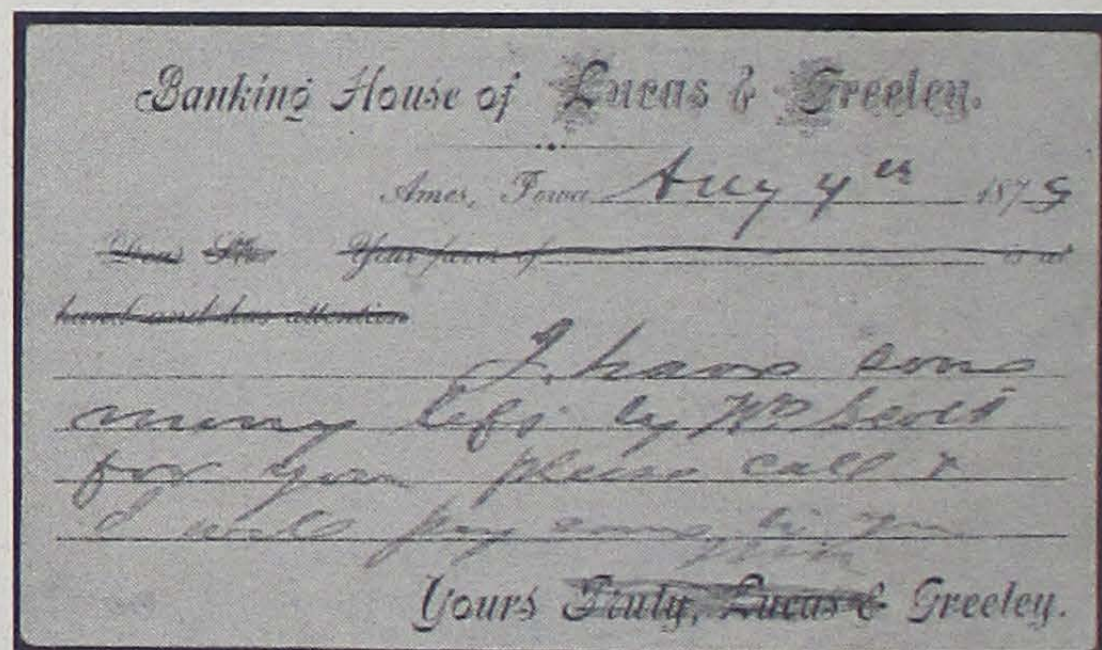 Banking House of Lucas & Greeley.
Ames, Iowa Aug 4th 1879
Dear Sir Your favor of is at
hand and has attention
I have some
money left by Wm Scott
for you please call &
I will pay same to you
Yours Truly, Lucas & Greeley.